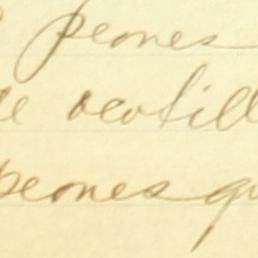 peones
de ocotill
peones qu